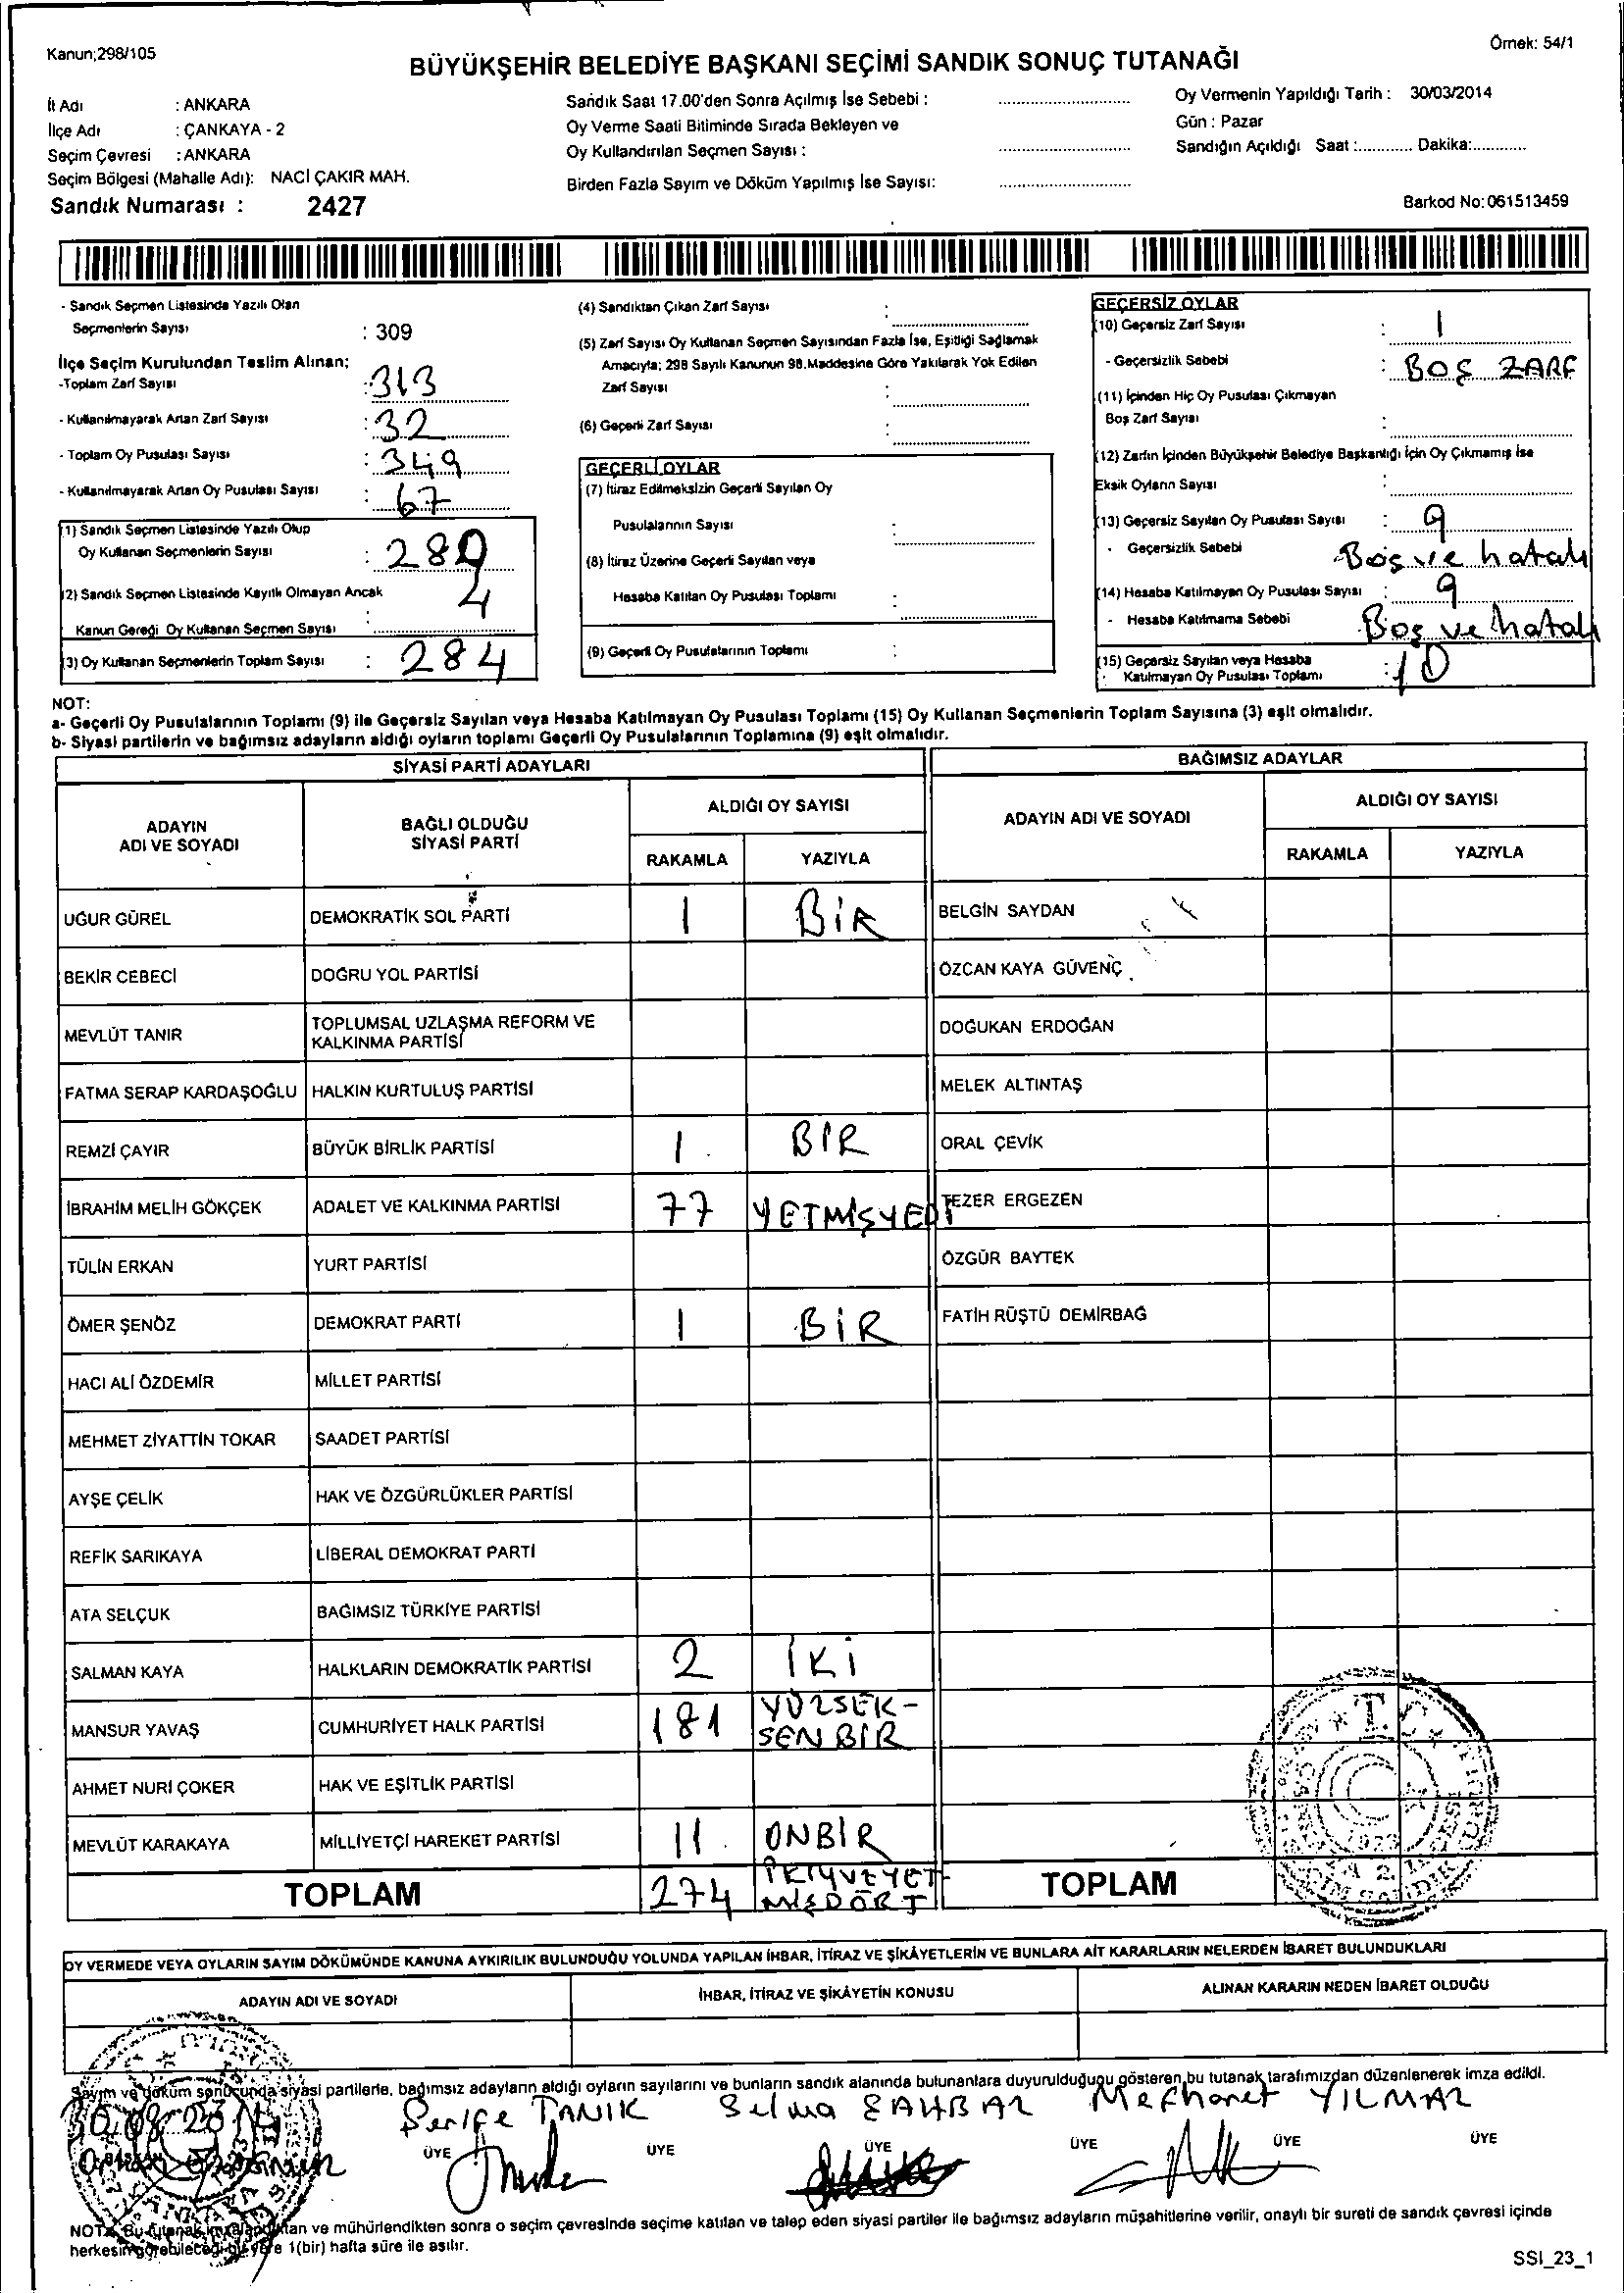 Kanun;298/105
Örnek: 54/1
BÜYÜKŞEHİR BELEDİYE BAŞKANI SEÇİMİ SANDIK SONUÇ TUTANAĞI
İl Adı : ANKARA
İlçe Adı : ÇANKAYA - 2
Seçim Çevresi : ANKARA
Seçim Bölgesi (Mahalle Adı): NACİ ÇAKIR MAH.
Sandık Numarası : 2427
Sandık Saat 17.00'den Sonra Açılmış İse Sebebi :
Oy Verme Saati Bitiminde Sırada Bekleyen ve
Oy Kullandırılan Seçmen Sayısı :
Birden Fazla Sayım ve Döküm Yapılmış İse Sayısı:
Oy Vermenin Yapıldığı Tarih : 30/03/2014
Gün : Pazar
Sandığın Açıldığı Saat :............ Dakika:............
Barkod No:061513459
- Sandık Seçmen Listesinde Yazılı Olan
Seçmenlerin Sayısı : 309
İlçe Seçim Kurulundan Teslim Alınan;
-Toplam Zarf Sayısı : 313
- Kullanılmayarak Artan Zarf Sayısı : 32
- Toplam Oy Pusulası Sayısı : 349
- Kullanılmayarak Artan Oy Pusulası Sayısı : 67
(1) Sandık Seçmen Listesinde Yazılı Olup
Oy Kullanan Seçmenlerin Sayısı : 280
(2) Sandık Seçmen Listesinde Kayıtlı Olmayan Ancak
Kanun Gereği Oy Kullanan Seçmen Sayısı : 4
(3) Oy Kullanan Seçmenlerin Toplam Sayısı : 284
(4) Sandıktan Çıkan Zarf Sayısı :
(5) Zarf Sayısı Oy Kullanan Seçmen Sayısından Fazla İse, Eşitliği Sağlamak
Amacıyla; 298 Sayılı Kanunun 98.Maddesine Göre Yakılarak Yok Edilen
Zarf Sayısı :
(6) Geçerli Zarf Sayısı :
GEÇERLİ OYLAR
(7) İtiraz Edilmeksizin Geçerli Sayılan Oy
Pusulalarının Sayısı :
(8) İtiraz Üzerine Geçerli Sayılan veya
Hesaba Katılan Oy Pusulası Toplamı :
(9) Geçerli Oy Pusulalarının Toplamı :
GEÇERSİZ OYLAR
(10) Geçersiz Zarf Sayısı : 1
- Geçersizlik Sebebi : BOŞ ZARF
(11) İçinden Hiç Oy Pusulası Çıkmayan
Boş Zarf Sayısı :
(12) Zarfın İçinden Büyükşehir Belediye Başkanlığı İçin Oy Çıkmamış İse
Eksik Oyların Sayısı :
(13) Geçersiz Sayılan Oy Pusulası Sayısı : 9
- Geçersizlik Sebebi Boş ve hatalı
(14) Hesaba Katılmayan Oy Pusulası Sayısı : 9
- Hesaba Katılmama Sebebi Boş ve hatalı
(15) Geçersiz Sayılan veya Hesaba
Katılmayan Oy Pusulası Toplamı : 10
NOT:
a- Geçerli Oy Pusulalarının Toplamı (9) ile Geçersiz Sayılan veya Hesaba Katılmayan Oy Pusulası Toplamı (15) Oy Kullanan Seçmenlerin Toplam Sayısına (3) eşit olmalıdır.
b- Siyasi partilerin ve bağımsız adayların aldığı oyların toplamı Geçerli Oy Pusulalarının Toplamına (9) eşit olmalıdır.
SİYASİ PARTİ ADAYLARI
BAĞIMSIZ ADAYLAR
ADAYIN
ADI VE SOYADI
BAĞLI OLDUĞU
SİYASİ PARTİ
ALDIĞI OY SAYISI
RAKAMLA YAZIYLA
ADAYIN ADI VE SOYADI
ALDIĞI OY SAYISI
RAKAMLA YAZIYLA
UĞUR GÜREL DEMOKRATİK SOL PARTİ 1 BİR BELGİN SAYDAN
BEKİR CEBECİ DOĞRU YOL PARTİSİ ÖZCAN KAYA GÜVENÇ
MEVLÜT TANIR TOPLUMSAL UZLAŞMA REFORM VE
KALKINMA PARTİSİ DOĞUKAN ERDOĞAN
FATMA SERAP KARDAŞOĞLU HALKIN KURTULUŞ PARTİSİ MELEK ALTINTAŞ
REMZİ ÇAYIR BÜYÜK BİRLİK PARTİSİ 1 BİR ORAL ÇEVİK
İBRAHİM MELİH GÖKÇEK ADALET VE KALKINMA PARTİSİ 77 YETMİŞYEDİ TEZER ERGEZEN
TÜLİN ERKAN YURT PARTİSİ ÖZGÜR BAYTEK
ÖMER ŞENÖZ DEMOKRAT PARTİ 1 BİR FATİH RÜŞTÜ DEMİRBAĞ
HACI ALİ ÖZDEMİR MİLLET PARTİSİ
MEHMET ZİYATTİN TOKAR SAADET PARTİSİ
AYŞE ÇELİK HAK VE ÖZGÜRLÜKLER PARTİSİ
REFİK SARIKAYA LİBERAL DEMOKRAT PARTİ
ATA SELÇUK BAĞIMSIZ TÜRKİYE PARTİSİ
SALMAN KAYA HALKLARIN DEMOKRATİK PARTİSİ 2 İKİ
MANSUR YAVAŞ CUMHURİYET HALK PARTİSİ 181 YÜZSEK-
SENBİR
AHMET NURİ ÇOKER HAK VE EŞİTLİK PARTİSİ
MEVLÜT KARAKAYA MİLLİYETÇİ HAREKET PARTİSİ 11 ONBİR
TOPLAM 274 İKİYÜZYET-
MİŞDÖRT TOPLAM
OY VERMEDE VEYA OYLARIN SAYIM DÖKÜMÜNDE KANUNA AYKIRILIK BULUNDUĞU YOLUNDA YAPILAN İHBAR, İTİRAZ VE ŞİKÂYETLERİN VE BUNLARA AİT KARARLARIN NELERDEN İBARET BULUNDUKLARI
ADAYIN ADI VE SOYADI İHBAR, İTİRAZ VE ŞİKÂYETİN KONUSU ALINAN KARARIN NEDEN İBARET OLDUĞU
Sayım ve döküm sonucunda siyasi partilerle, bağımsız adayların aldığı oyların sayılarını ve bunların sandık alanında bulunanlara duyurulduğunu gösteren bu tutanak tarafımızdan düzenlenerek imza edildi.
Şerife TANIK Selma Mefharet YILMAZ
ÜYE ÜYE ÜYE ÜYE ÜYE ÜYE
NOT: Bu tutanak imzalandıktan ve mühürlendikten sonra o seçim çevresinde seçime katılan ve talep eden siyasi partiler ile bağımsız adayların müşahitlerine verilir, onaylı bir sureti de sandık çevresi içinde
herkesin görebileceği bir yere 1(bir) hafta süre ile asılır.
SSI_23_1